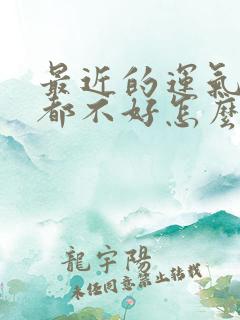 最近的運氣
都不好怎麼
龍宇陽
未經同意禁止轉載